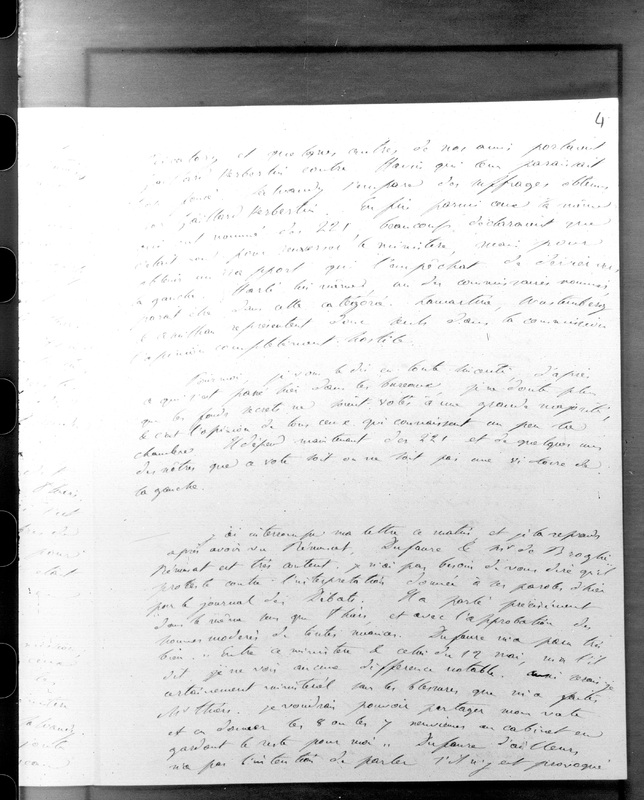 4
et quelques centres où nos amis portaient
Gaillard Kerbertin contre Havin qui leur paraissait
s'empare des suffrages obtenus
par Gaillard Kerbertin. Enfin parmi ceux là même
qui ont nommé des 221, beaucoup déclaraient que
c'était non pour renverser le ministère, mais pour
obtenir un rapport qui l'empêchat de
la gauche. lui même, un des commissaires nommés,
serait dans cette catégorie. Lamartine, Wustemberg
et représentent donc seuls dans la commission
l'opinion complètement hostile.
Pour moi, je vous le dis en toute sincérité, d'après
ce qui s'est passé hier dans les bureaux, je ne doute plus
que les fonds secrets ne soient votés à une grande majorité,
et c'est l'opinion de tous ceux qui connaissent un peu la
chambre. Il dépend maintenant des 221 et de quelques uns
des nôtres que ce vote soit ou ne soit pas une victoire de
la gauche.
j'ai interrompu ma lettre ce matin, et je la reprends
après avoir vu Rémusat, Dufaure et Mr de Broglie.
Rémusat est très content. je n'ai pas besoin de vous dire qu'il
proteste contre l'interprétation donnée à ses paroles d'hier
par le journal des Débats. Il a parlé précisément
dans le même sens que Thiers, et avec l'approbation des
hommes modérés de toutes nuances. Dufaure m'a paru très
bien. "Entre ce ministère et celui du 12 mai, m'a-t-il
dit, je ne vois aucune différence notable. aussi serais-je
certainement ministériel sans les blessures que m'a faites
Mr Thiers. je voudrais pouvoir partager mon vote
et en donner les 8 ou les 7 neuvièmes au cabinet en
gardant le reste pour moi." Dufaure d'ailleurs
n'a pas l'intention de parler s'il n'y est provoqué